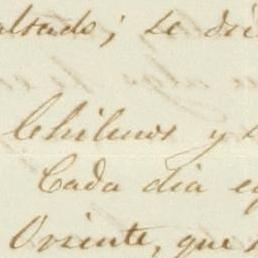 altado; se
Chilenos y
Cada dia
Oriente, que